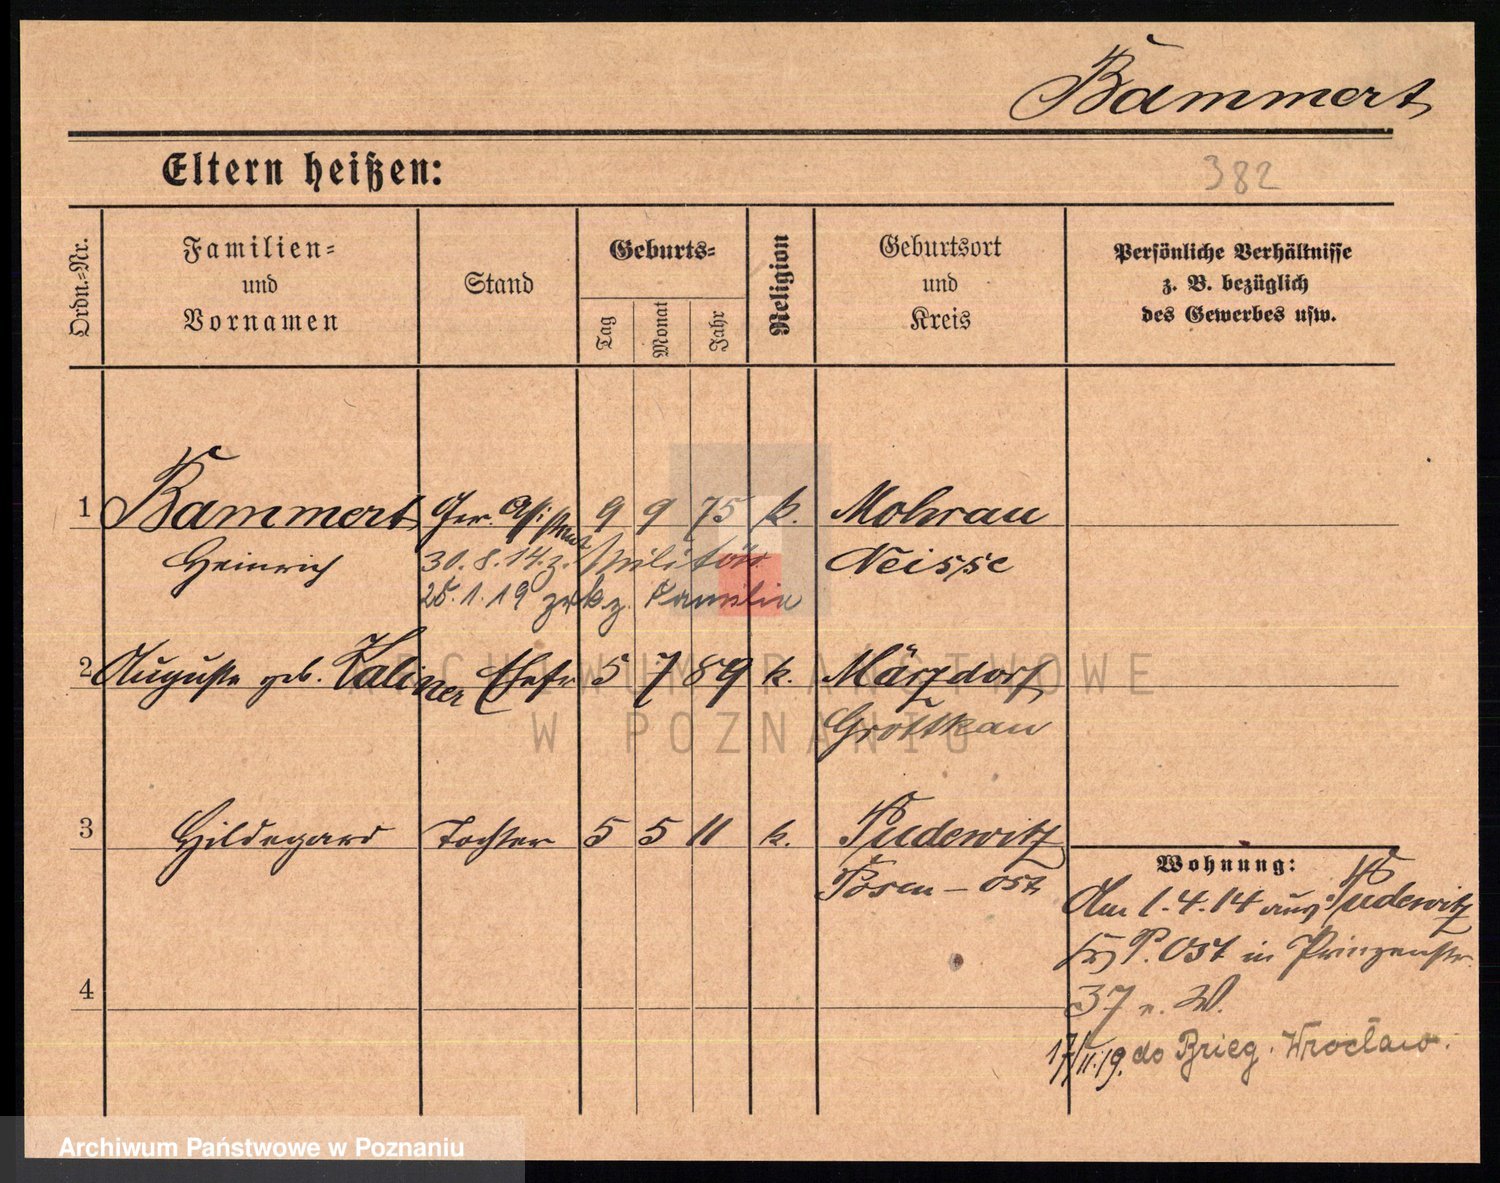 Bammert
Eltern heißen:
382
Ordn.-Nr.
Familien- und Vornamen
Stand
Geburts-
Tag
Monat
Jahr
Religion
Geburtsort und Kreis
Persönliche Verhältnisse
z. B. bezüglich
des Gewerbes usw.
1 Bammert Ger. Assistent 9 9 75 k. Mohrau
Heinrich 30.8.14. z. Militär Neisse
25.1.19 zrk z. Familie
2 Auguste geb. Ehefr 5 7 89 k. Märzdorf
Grottkau
3 Hildegard Tochter 5 5 11 k. Pudewitz
Posen-Ost
Wohnung:
Am 1.4.14 aus Pudewitz
P. Ost in Prinzenstr.
4
37 v. W.
17/II.19. do Brieg. Wrocław.
ARCHIWUM PAŃSTWOWE
W POZNANIU
Archiwum Państwowe w Poznaniu